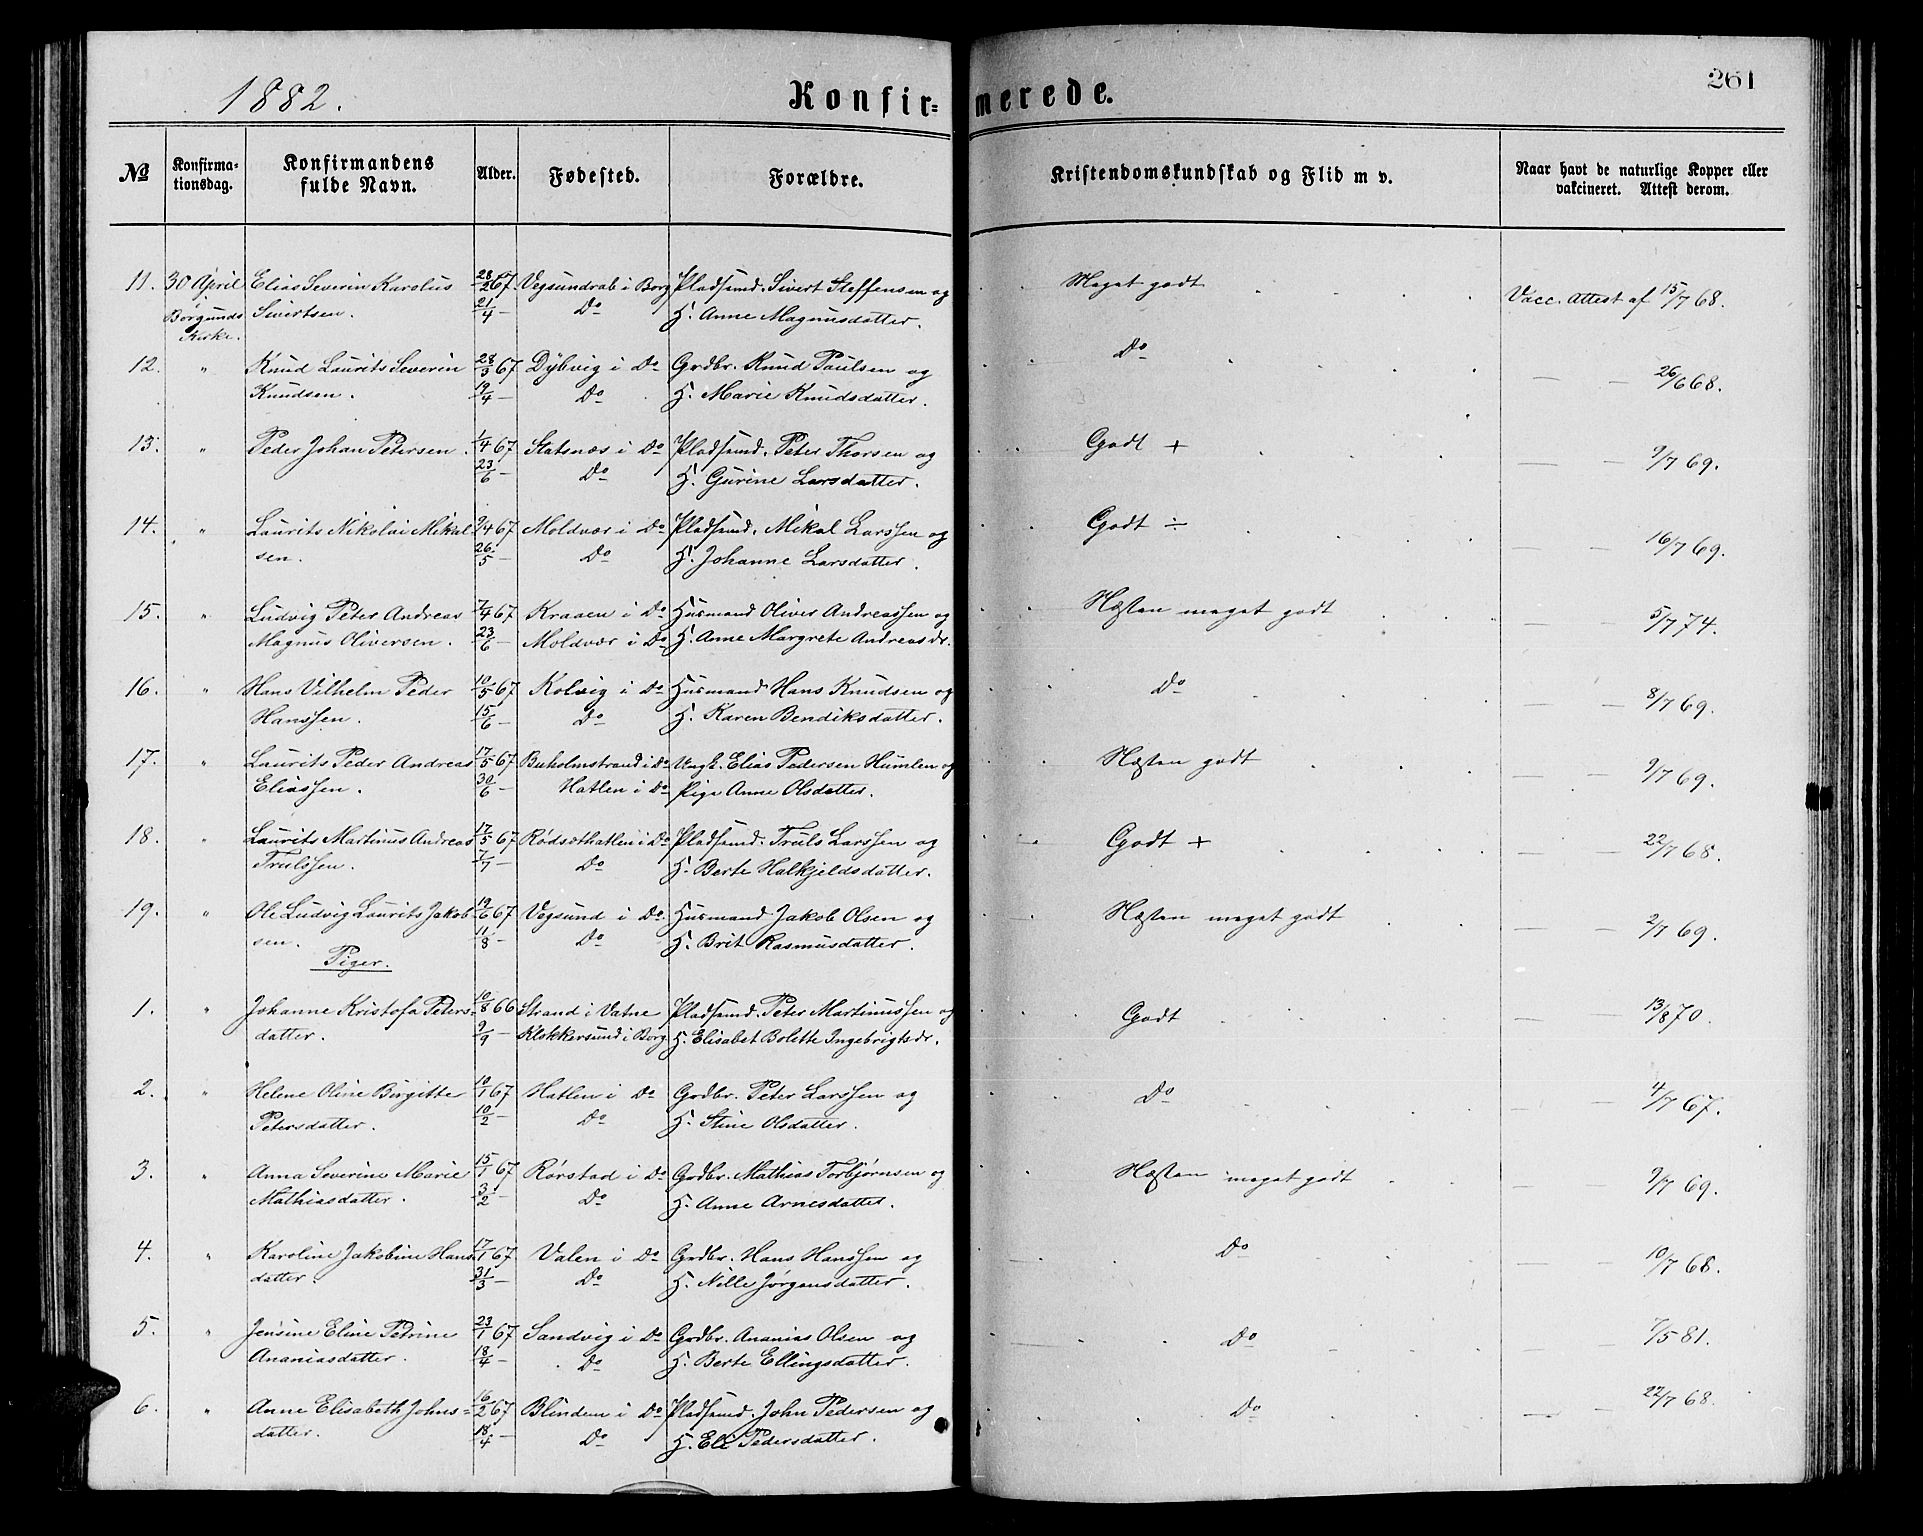 1882.
Konfir-
merede.
261
No
Konfirma-
tionsdag.
Konfirmandens
fulde Navn.
Alder.
Fødested.
Forældre.
Kristendomskundskab og Flid m v.
Naar havt de naturlige Kopper eller
vakcineret. Attest derom.
11. 30 April Elias Severin Karolus 28/2 67 Vegsundrab i Borg Pladsmd. Sivert Steffensen og Meget godt Vacc. Attest af 15/7 68.
i Borgunds Kirke. Sivertsen. 21/4 — Do H. Anne Magnusdatter.
12. " Knud Laurits Severin 28/3 67 Dybvig i Do Grdbr. Knud Paulsen og Do — — 26/6 68.
Knudsen. 19/4 — Do H. Marie Knudsdatter.
13. " Peder Johan Petersen. 1/4 67 Slatsnæs i Do Pladsmd. Peter Thorsen og Godt + — — 9/7 69.
23/6 — Do H. Gurine Larsdatter.
14. " Laurits Nikolai Mikal- 9/4 67 Moldvær i Do Pladsmd. Mikal Larssen og Godt ÷ — — 16/7 69.
sen. 26/5 — Do H. Johanne Larsdatter.
15. " Ludvig Peter Andreas 7/4 67 Kraaen i Do Husmand Oliver Andreassen og Næsten meget godt — — 5/7 74.
Magnus Oliversen. 23/6 — Moldvær i Do H. Anne Margrete Andreasdr.
16. " Hans Vilhelm Peder 10/5 67 Kolvig i Do Husmand Hans Knudsen og Do — — 8/7 69.
Hanssen. 15/6 — Do H. Karen Bendiksdatter.
17. " Laurits Peder Andreas 17/5 67 Buholmstrand i Do Ungk. Elias Pedersen Humlen og Næsten godt — — 9/7 69.
Eliassen. 30/6 — Hatlen i Do Pige Anne Olsdatter.
18. " Laurits Martinus Andreas 17/5 67 Rødsæthatlen i Do Pladsmd. Truls Larssen og Godt + — — 22/7 68.
Trulssen. 7/7 — Do H. Berte Halkjeldsdatter.
19. " Ole Ludvig Laurits Jakob- 19/6 67 Vegsund i Do. Husmand Jakob Olsen og Næsten meget godt — — 2/7 69.
sen. 11/8 — Do H. Brit Rasmusdatter.
Piger.
1. " Johanne Kristofa Peters- 10/8 66 Strand i Vatne Pladsmd. Peter Martinussen og Godt — — 13/8 70.
datter. 9/9 — Klokkersund i Borg. H. Elisabet Bolette Ingebrigtsdr.
2. " Helene Oline Birgitte 10/1 67 Hatlen i Do Grdbr. Peter Larssen og Do — — 4/7 67.
Petersdatter. 10/2 — Do H. Stine Olsdatter.
3. " Anna Severine Marie 15/1 67 Rørstad i Do Grdbr. Mathias Torbjørnsen og Næsten meget godt — — 9/7 69.
Mathiasdatter. 3/2 — Do H. Anne Arnesdatter.
4. " Karoline Jakobine Hans- 17/1 67 Valen i Do Grdbr. Hans Hanssen og Do — — 10/7 68.
datter. 31/3 — Do H. Nille Jørgensdatter.
5. " Jensine Eline Petrine 23/1 67 Sandvig i Do Grdbr. Ananias Olsen og Do — — 7/5 81.
Ananiasdatter. 18/4 — Do H. Berte Ellingsdatter.
6. " Anne Elisabeth Johns- 16/2 67 Blindem i Do Pladsmd. John Pedersen og Do — — 22/7 68.
datter. 18/4 — Do H. Eli Pedersdatter.